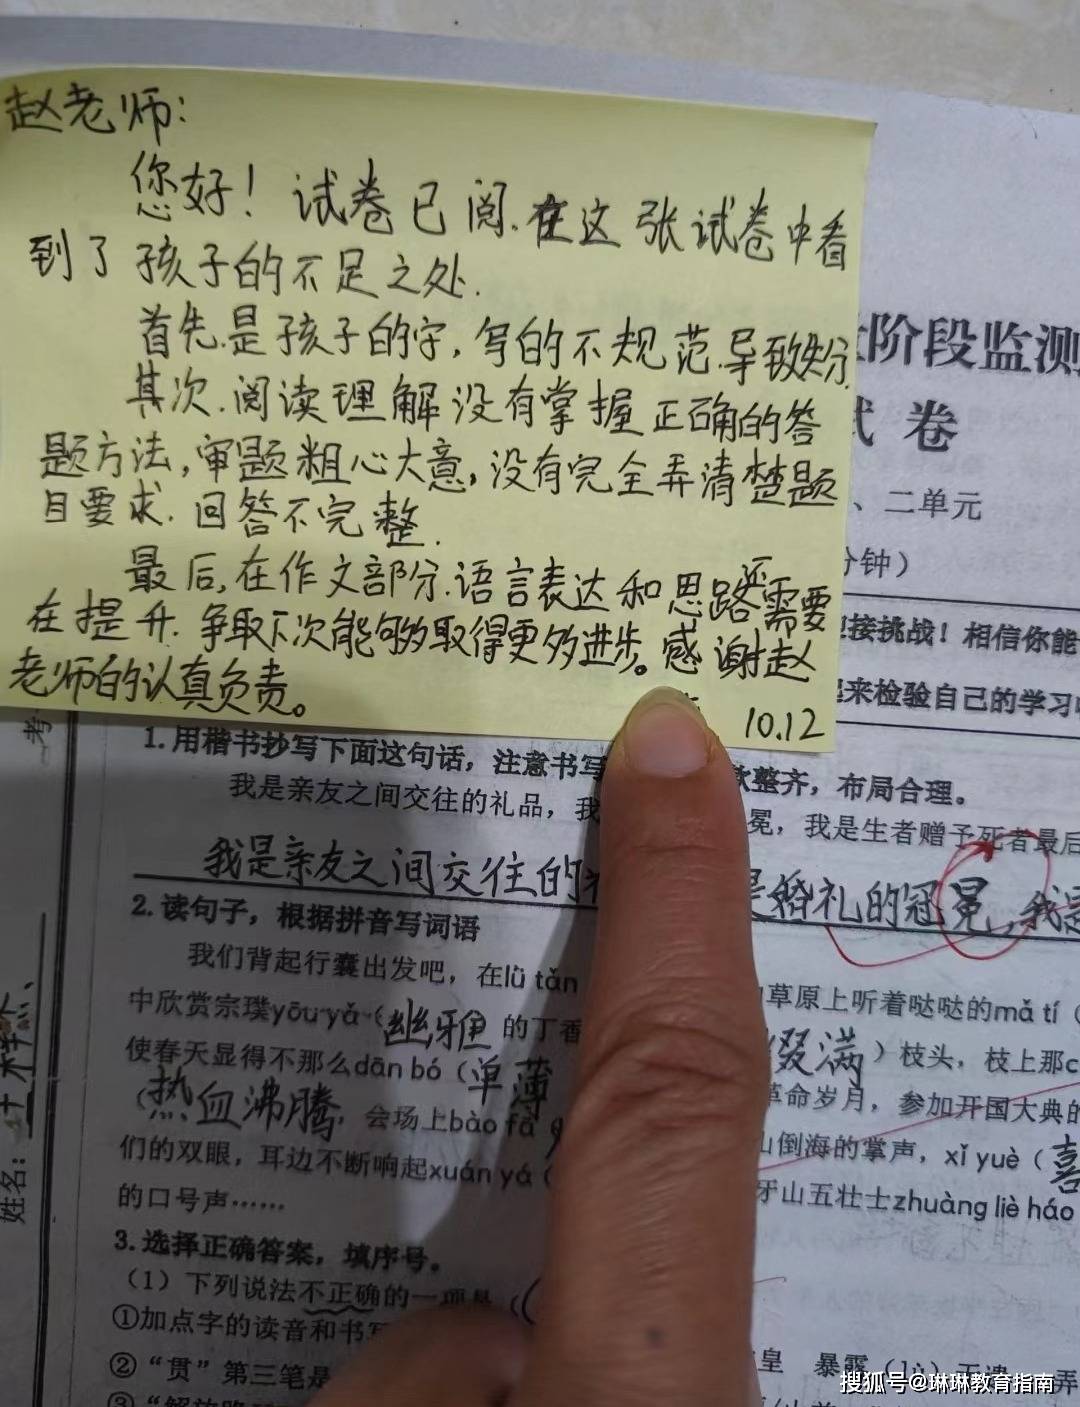 赵老师：
您好！试卷已阅.在这张试卷中看
到了孩子的不足之处.
首先.是孩子的字，写的不规范.导致失分.
其次.阅读理解没有掌握正确的答
题方法，审题粗心大意，没有完全弄清楚题
目要求.回答不完整.
最后，在作文部分.语言表达和思路还需要
在提升.争取下次能够取得更多进步。感谢赵
老师的认真负责。
10.12
阶段监测
试卷
、二单元
分钟）
迎接挑战！相信你能
起来检验自己的学习
考
1.用楷书抄写下面这句话，注意书写 整齐，布局合理。
我是亲友之间交往的礼品，我 冕，我是生者赠予死者最后
我是亲友之间交往的 是婚礼的冠冕，我是
2.读句子，根据拼音写词语
我们背起行囊出发吧，在lǜ tǎn 草原上听着哒哒的mǎ tí（
中欣赏宗璞yōu yǎ（幽雅 的丁香 缀满）枝头，枝上那
使春天显得不那么dān bó（单薄 革命岁月，参加开国大典的
（热血沸腾，会场上bào fā 山倒海的掌声，xǐ yuè（喜
们的双眼，耳边不断响起xuán yá（ 牙山五壮士zhuàng liè háo
的口号声……
3.选择正确答案，填序号。
（1）下列说法不正确的一项是（
①加点字的读音和书写 皇 暴露（lù）无遗 弄
②“贯”第三笔是
姓名：
搜狐号@琳琳教育指南